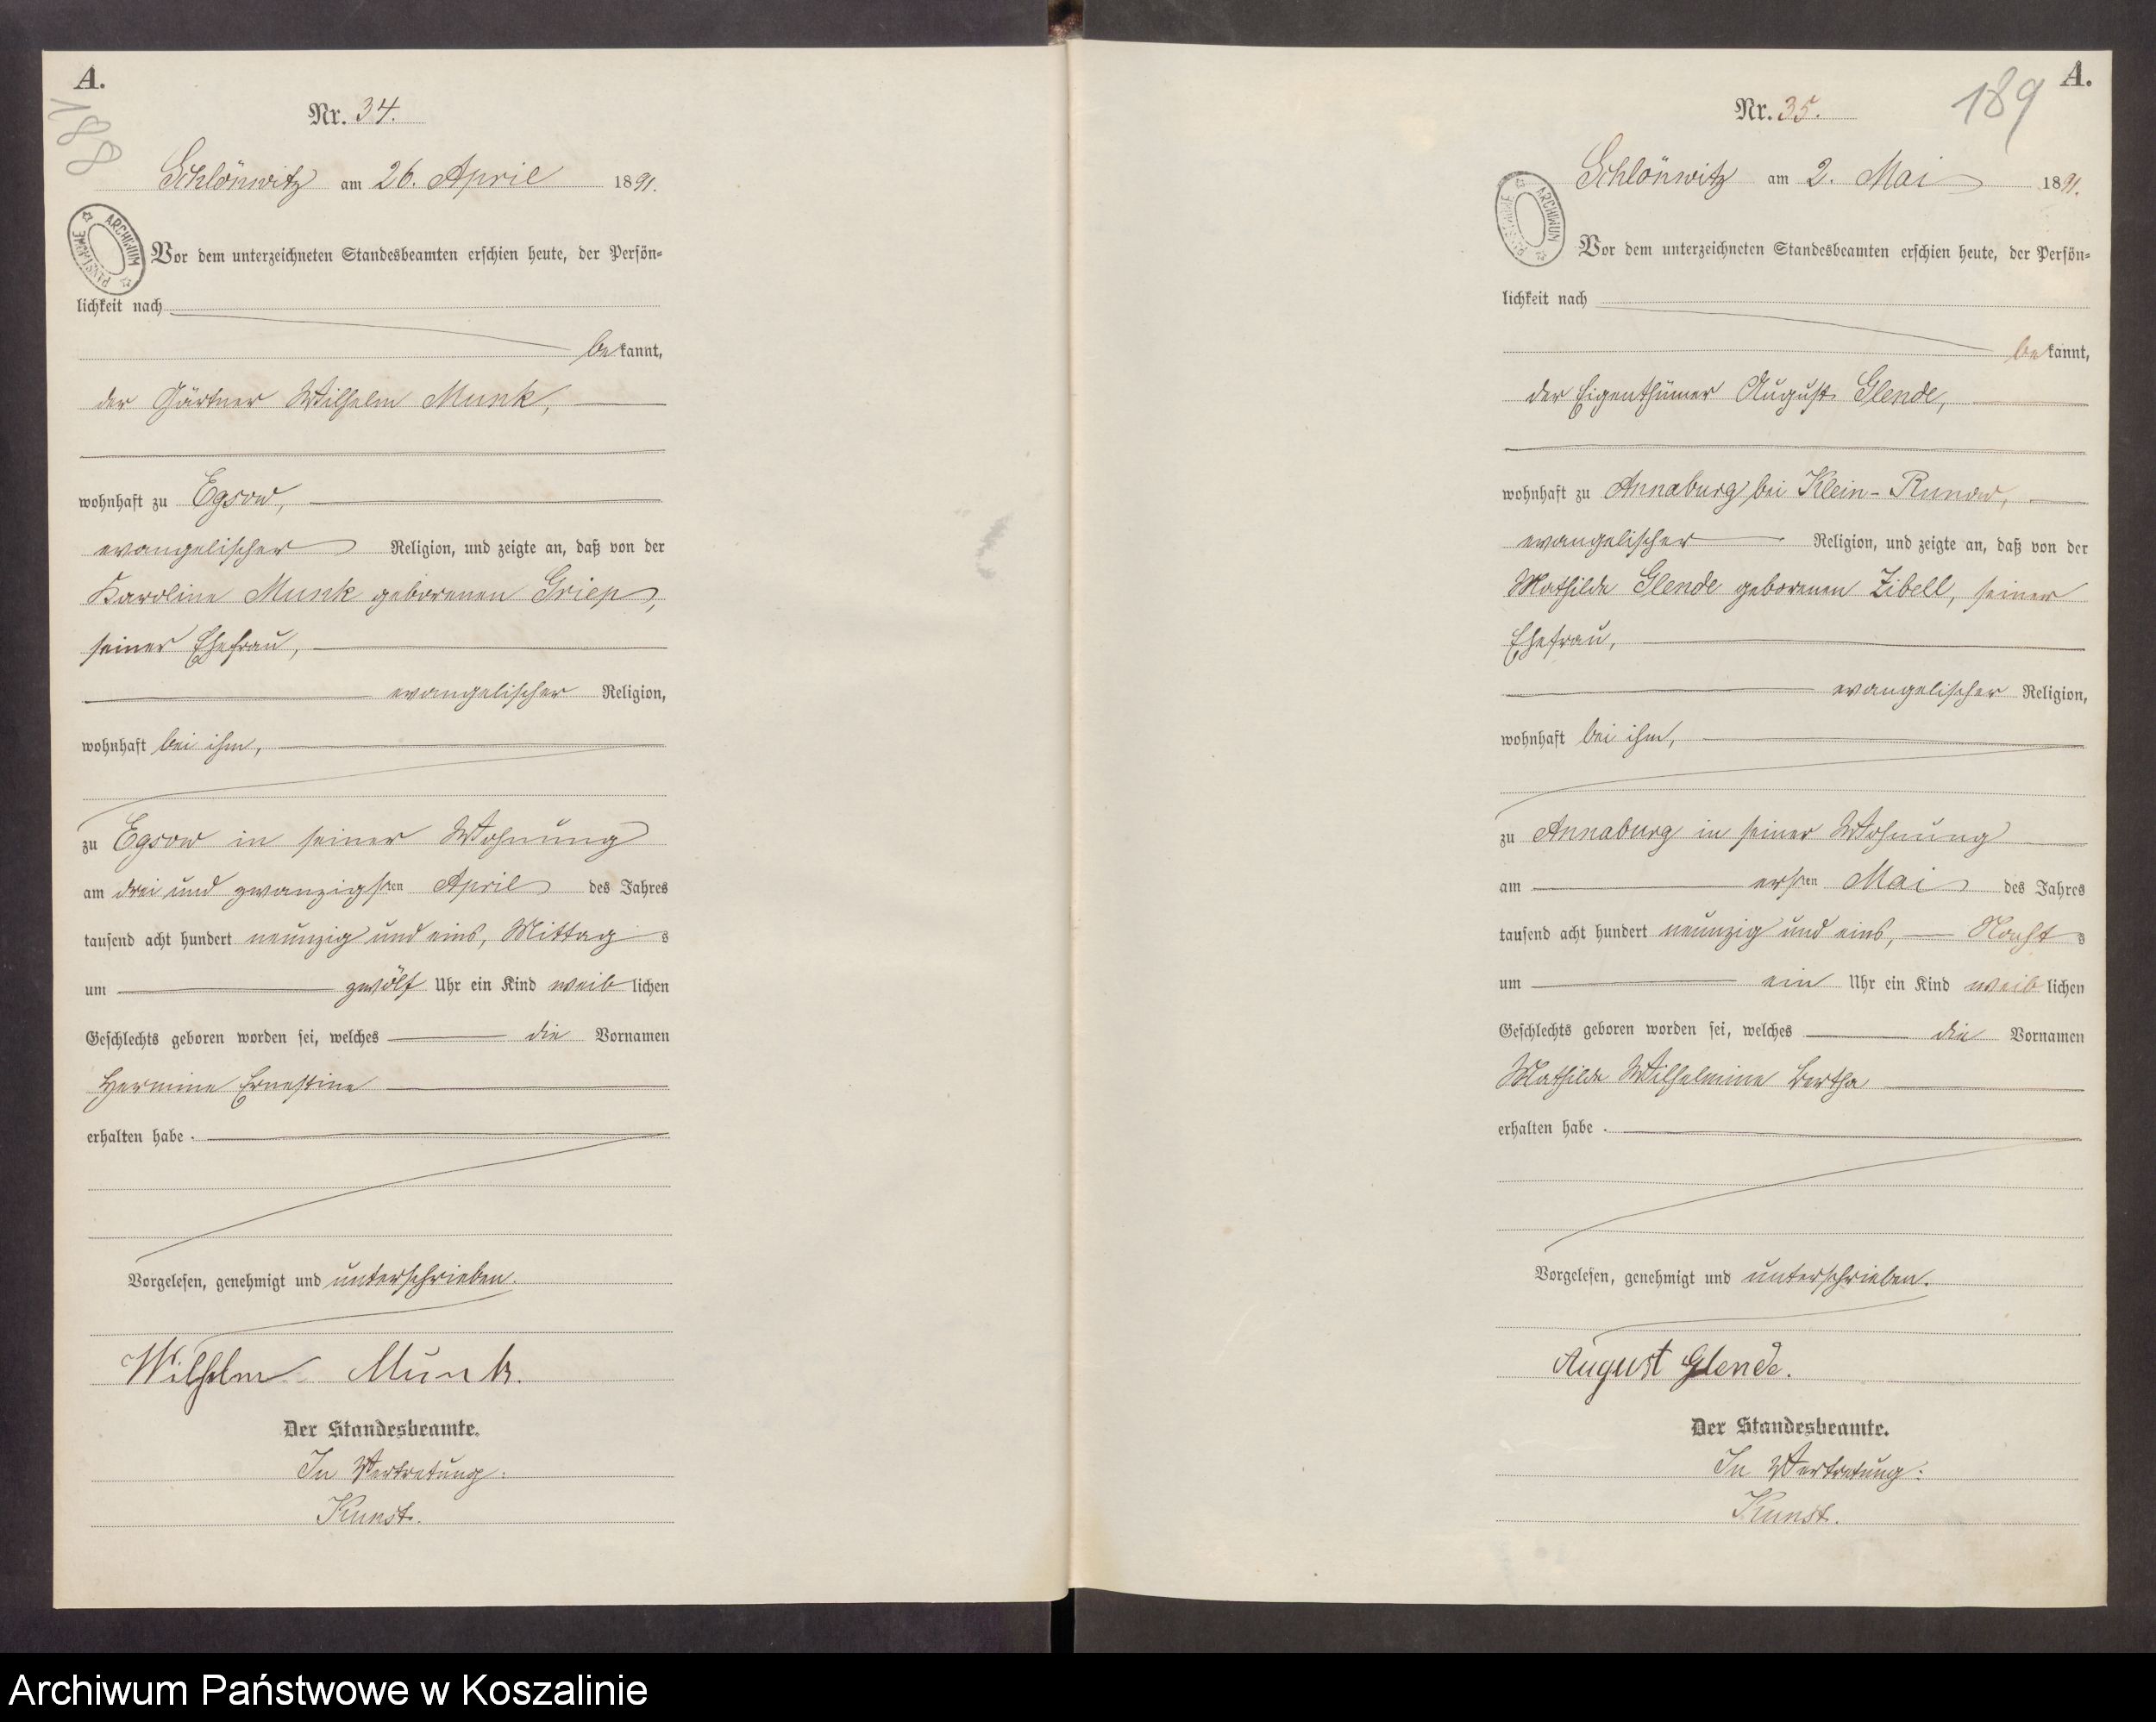 A.
188
Nr. 34.
Schlönwitz am 26. April 1891.
ARCHIWUM PAŃSTWOWE
Vor dem unterzeichneten Standesbeamten erschien heute, der Persön-
lichkeit nach
bekannt,
der Gärtner Wilhelm Munk,
wohnhaft zu Egsow,
evangelischer Religion, und zeigte an, daß von der
Karoline Munk geborenen Griep,
seiner Ehefrau,
evangelischer Religion,
wohnhaft bei ihm,
zu Egsow in seiner Wohnung
am drei und zwanzigsten April des Jahres
tausend acht hundert neunzig und eins, Mittags
um zwölf Uhr ein Kind weiblichen
Geschlechts geboren worden sei, welches die Vornamen
Hermine Ernestine
erhalten habe.
Vorgelesen, genehmigt und unterschrieben.
Wilhelm Munk.
Der Standesbeamte.
In Vertretung:
Kunst.
A.
189
Nr. 35.
Schlönwitz am 2. Mai 1891.
ARCHIWUM PAŃSTWOWE
Vor dem unterzeichneten Standesbeamten erschien heute, der Persön-
lichkeit nach
bekannt,
der Eigenthümer August Glende,
wohnhaft zu Annaburg bei Klein-Runow,
evangelischer Religion, und zeigte an, daß von der
Mathilde Glende geborenen Zibell, seiner
Ehefrau,
evangelischer Religion,
wohnhaft bei ihm,
zu Annaburg in seiner Wohnung
am ersten Mai des Jahres
tausend acht hundert neunzig und eins, Nachts
um ein Uhr ein Kind weiblichen
Geschlechts geboren worden sei, welches die Vornamen
Mathilde Wilhelmine Bertha
erhalten habe.
Vorgelesen, genehmigt und unterschrieben.
August Glende.
Der Standesbeamte.
In Vertretung:
Kunst.
Archiwum Państwowe w Koszalinie